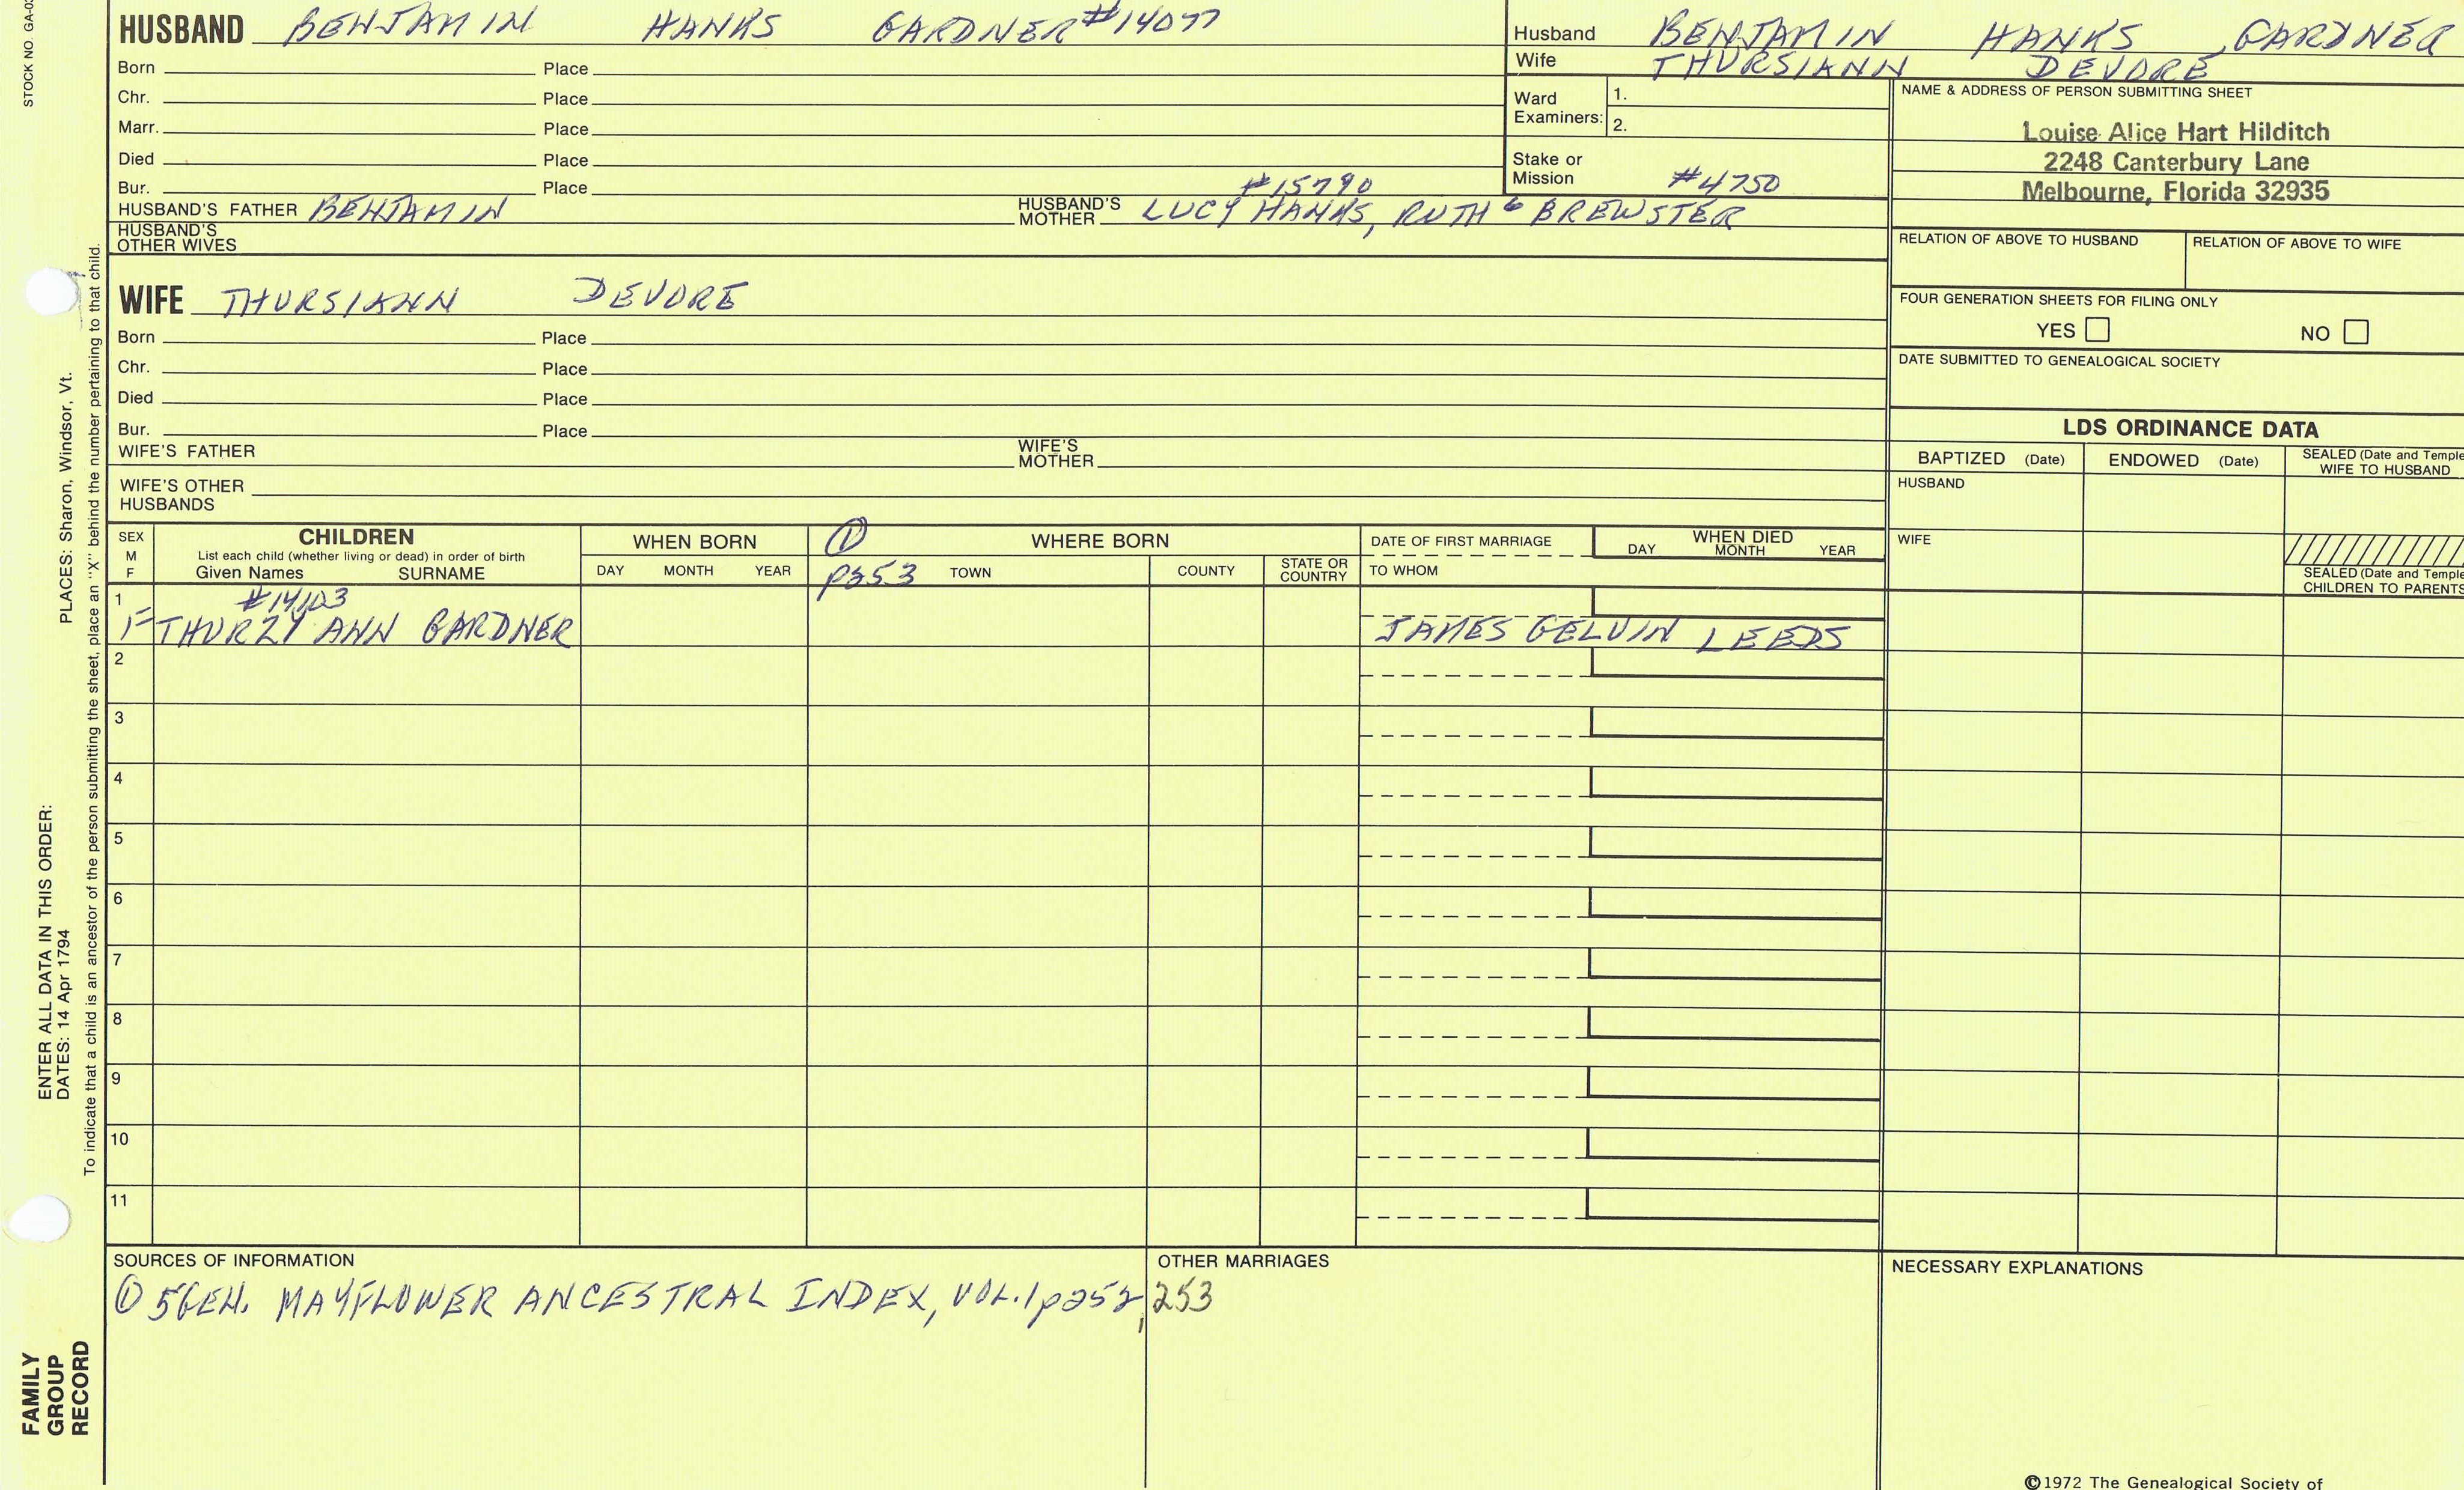 STOCK NO. GA-0
HUSBAND BENJAMIN HANKS GARDNER #14077
Born Place
Chr. Place
Marr. Place
Died Place
Bur. Place
#15790
HUSBAND'S FATHER BENJAMIN HUSBAND'S MOTHER LUCY HANKS, RUTH 6 BREWSTER
HUSBAND'S OTHER WIVES
Husband BENJAMIN HANKS GARDNER
Wife THURSIANN DEVORE
Ward Examiners: 1.
2.
Stake or Mission #4750
NAME & ADDRESS OF PERSON SUBMITTING SHEET
Louise Alice Hart Hilditch
2248 Canterbury Lane
Melbourne, Florida 32935
RELATION OF ABOVE TO HUSBAND RELATION OF ABOVE TO WIFE
FOUR GENERATION SHEETS FOR FILING ONLY
YES NO
DATE SUBMITTED TO GENEALOGICAL SOCIETY
WIFE THURSIANN DEVORE
Born Place
Chr. Place
Died Place
Bur. Place
WIFE'S FATHER WIFE'S MOTHER
WIFE'S OTHER HUSBANDS
LDS ORDINANCE DATA
BAPTIZED (Date) ENDOWED (Date) SEALED (Date and Temple
WIFE TO HUSBAND
HUSBAND
WIFE
SEALED (Date and Temple
CHILDREN TO PARENTS
SEX M F
CHILDREN
List each child (whether living or dead) in order of birth
Given Names SURNAME
WHEN BORN
DAY MONTH YEAR
① WHERE BORN
p253 TOWN COUNTY STATE OR COUNTRY
DATE OF FIRST MARRIAGE
TO WHOM
WHEN DIED
DAY MONTH YEAR
1 #14103
F THURZY ANN GARDNER JAMES GELVIN LEEDS
2
3
4
5
6
7
8
9
10
11
SOURCES OF INFORMATION
① 5GEN. MAYFLOWER ANCESTRAL INDEX, VOL.1 p252, 253
OTHER MARRIAGES
NECESSARY EXPLANATIONS
©1972 The Genealogical Society of
ENTER ALL DATA IN THIS ORDER:
DATES: 14 Apr 1794
PLACES: Sharon, Windsor, Vt.
To indicate that a child is an ancestor of the person submitting the sheet, place an "X" behind the number pertaining to that child.
FAMILY
GROUP
RECORD